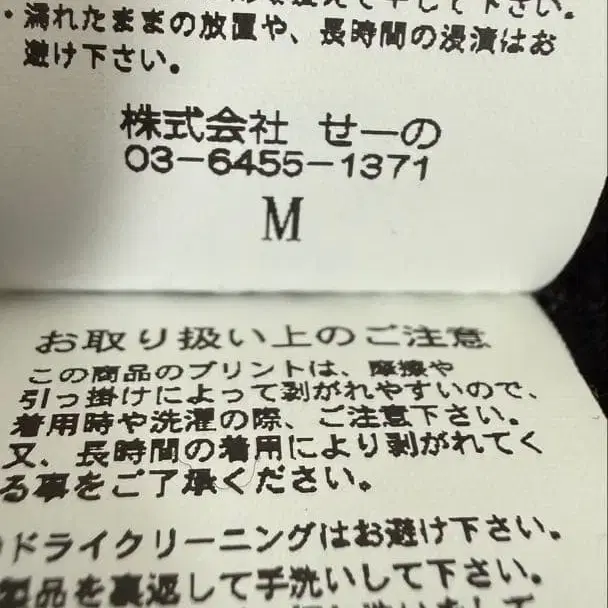 て干して下さい。
・濡れたままの放置や、長時間の浸漬はお
避け下さい。
株式会社 せーの
03-6455-1371
M
お取り扱い上のご注意
この商品のプリントは、摩擦や
引っ掛けによって剥がれやすいので、
着用時や洗濯の際、ご注意下さい。
又、長時間の着用により剥がれてく
る事をご了承ください。
ドライクリーニングはお避け下さい。
製品を裏返して手洗いして下さい。